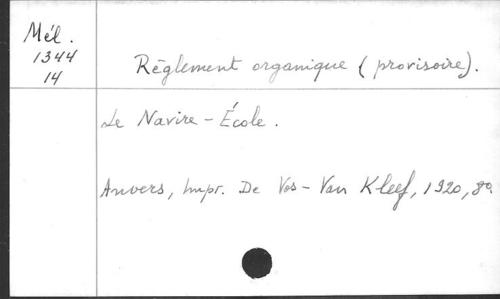 Mél.
1344
14
Règlement organique (provisoire).
Le Navire-École.
Anvers, Impr. De Vos-Van Kleef, 1920, 8º.